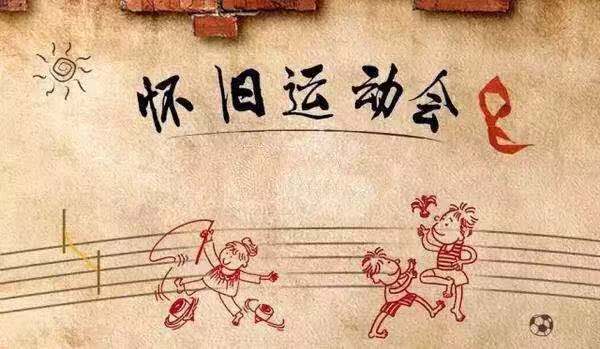 怀旧运动会